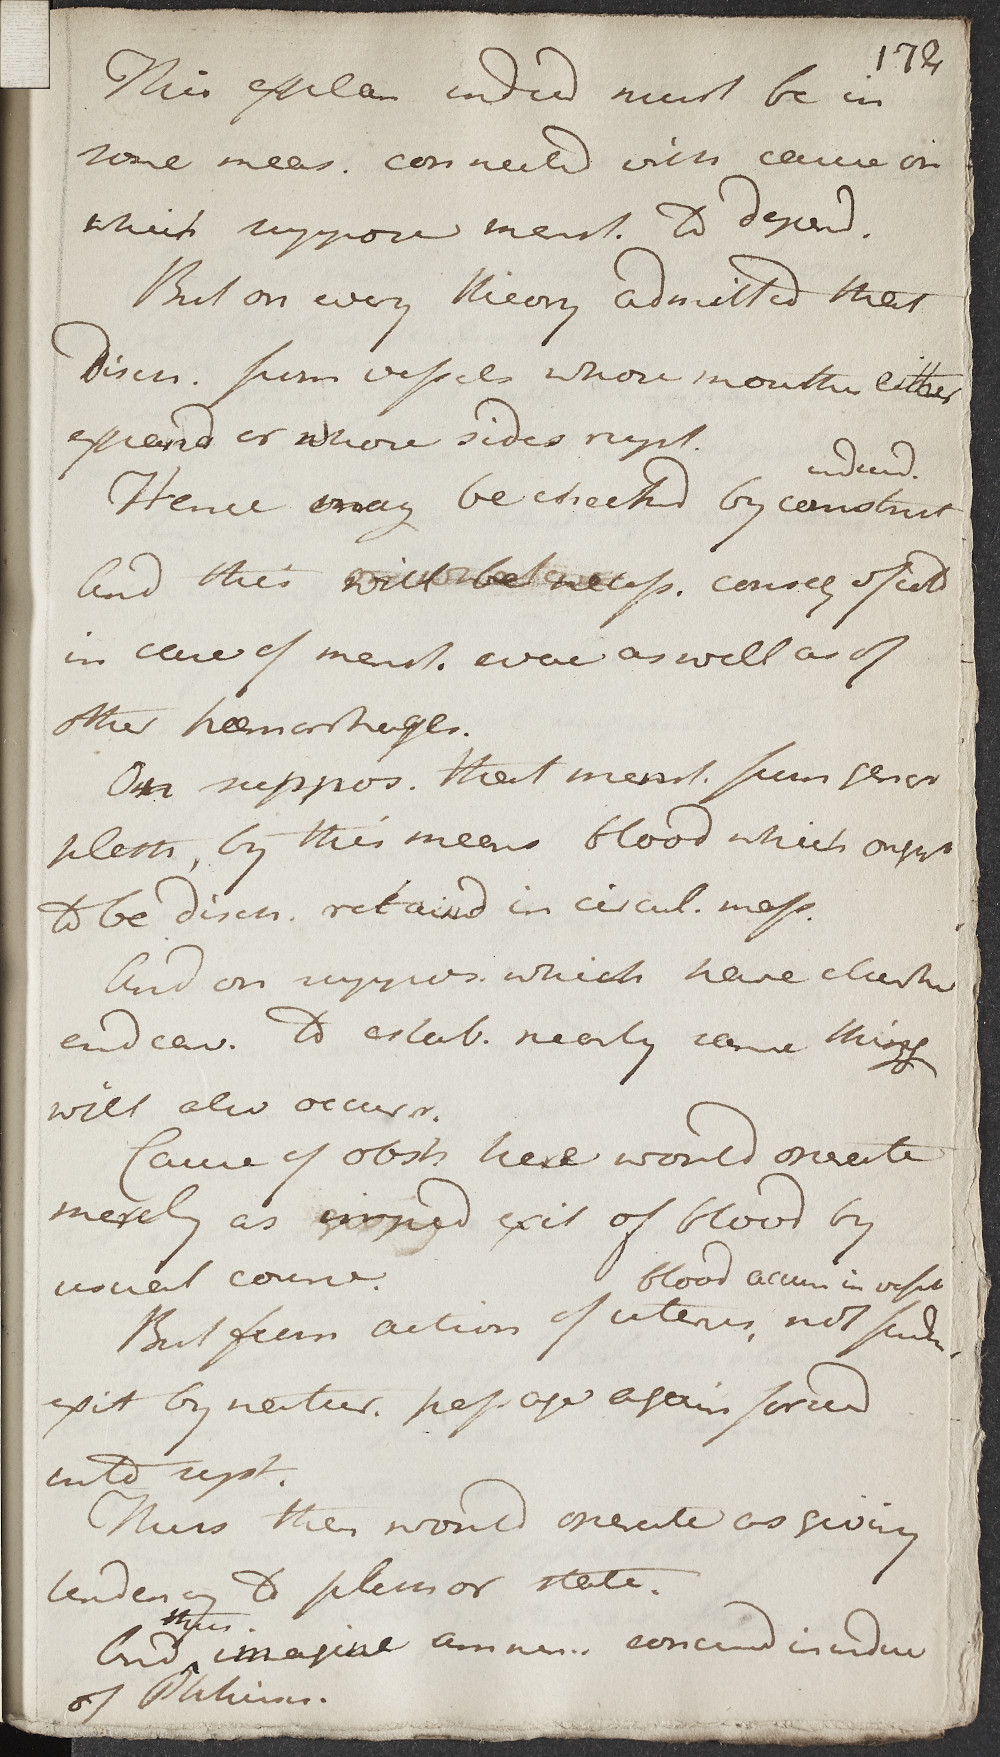 172
This explan indeed must be in
some meas. connected with cause on
which suppose menst. to depend.
But on every theory admitted that
Disch. from vessels whose mouths either
expand or whose sides rupt.
indeed.
Hence may be checked by constrict
And this will be necess. conseq of cold
in case of menst. evac as well as of
other hæmorrhages.
On suppos. that menst. from gener
pleth, by this means blood which ought
to be disch. retained in circul. mass.
And on suppos. which have
endeav. to estab. nearly same thing
will also occurr.
Cause of obst. here would operate
merely as exit of blood by
usual course.
blood accum in vessels
But from action of uterus, not
exit by natur. passage again forced
into syst.
Thus then would operate as giving
tendency to plethor state.
thus
And imagine concerned in induc
of Phthisis.